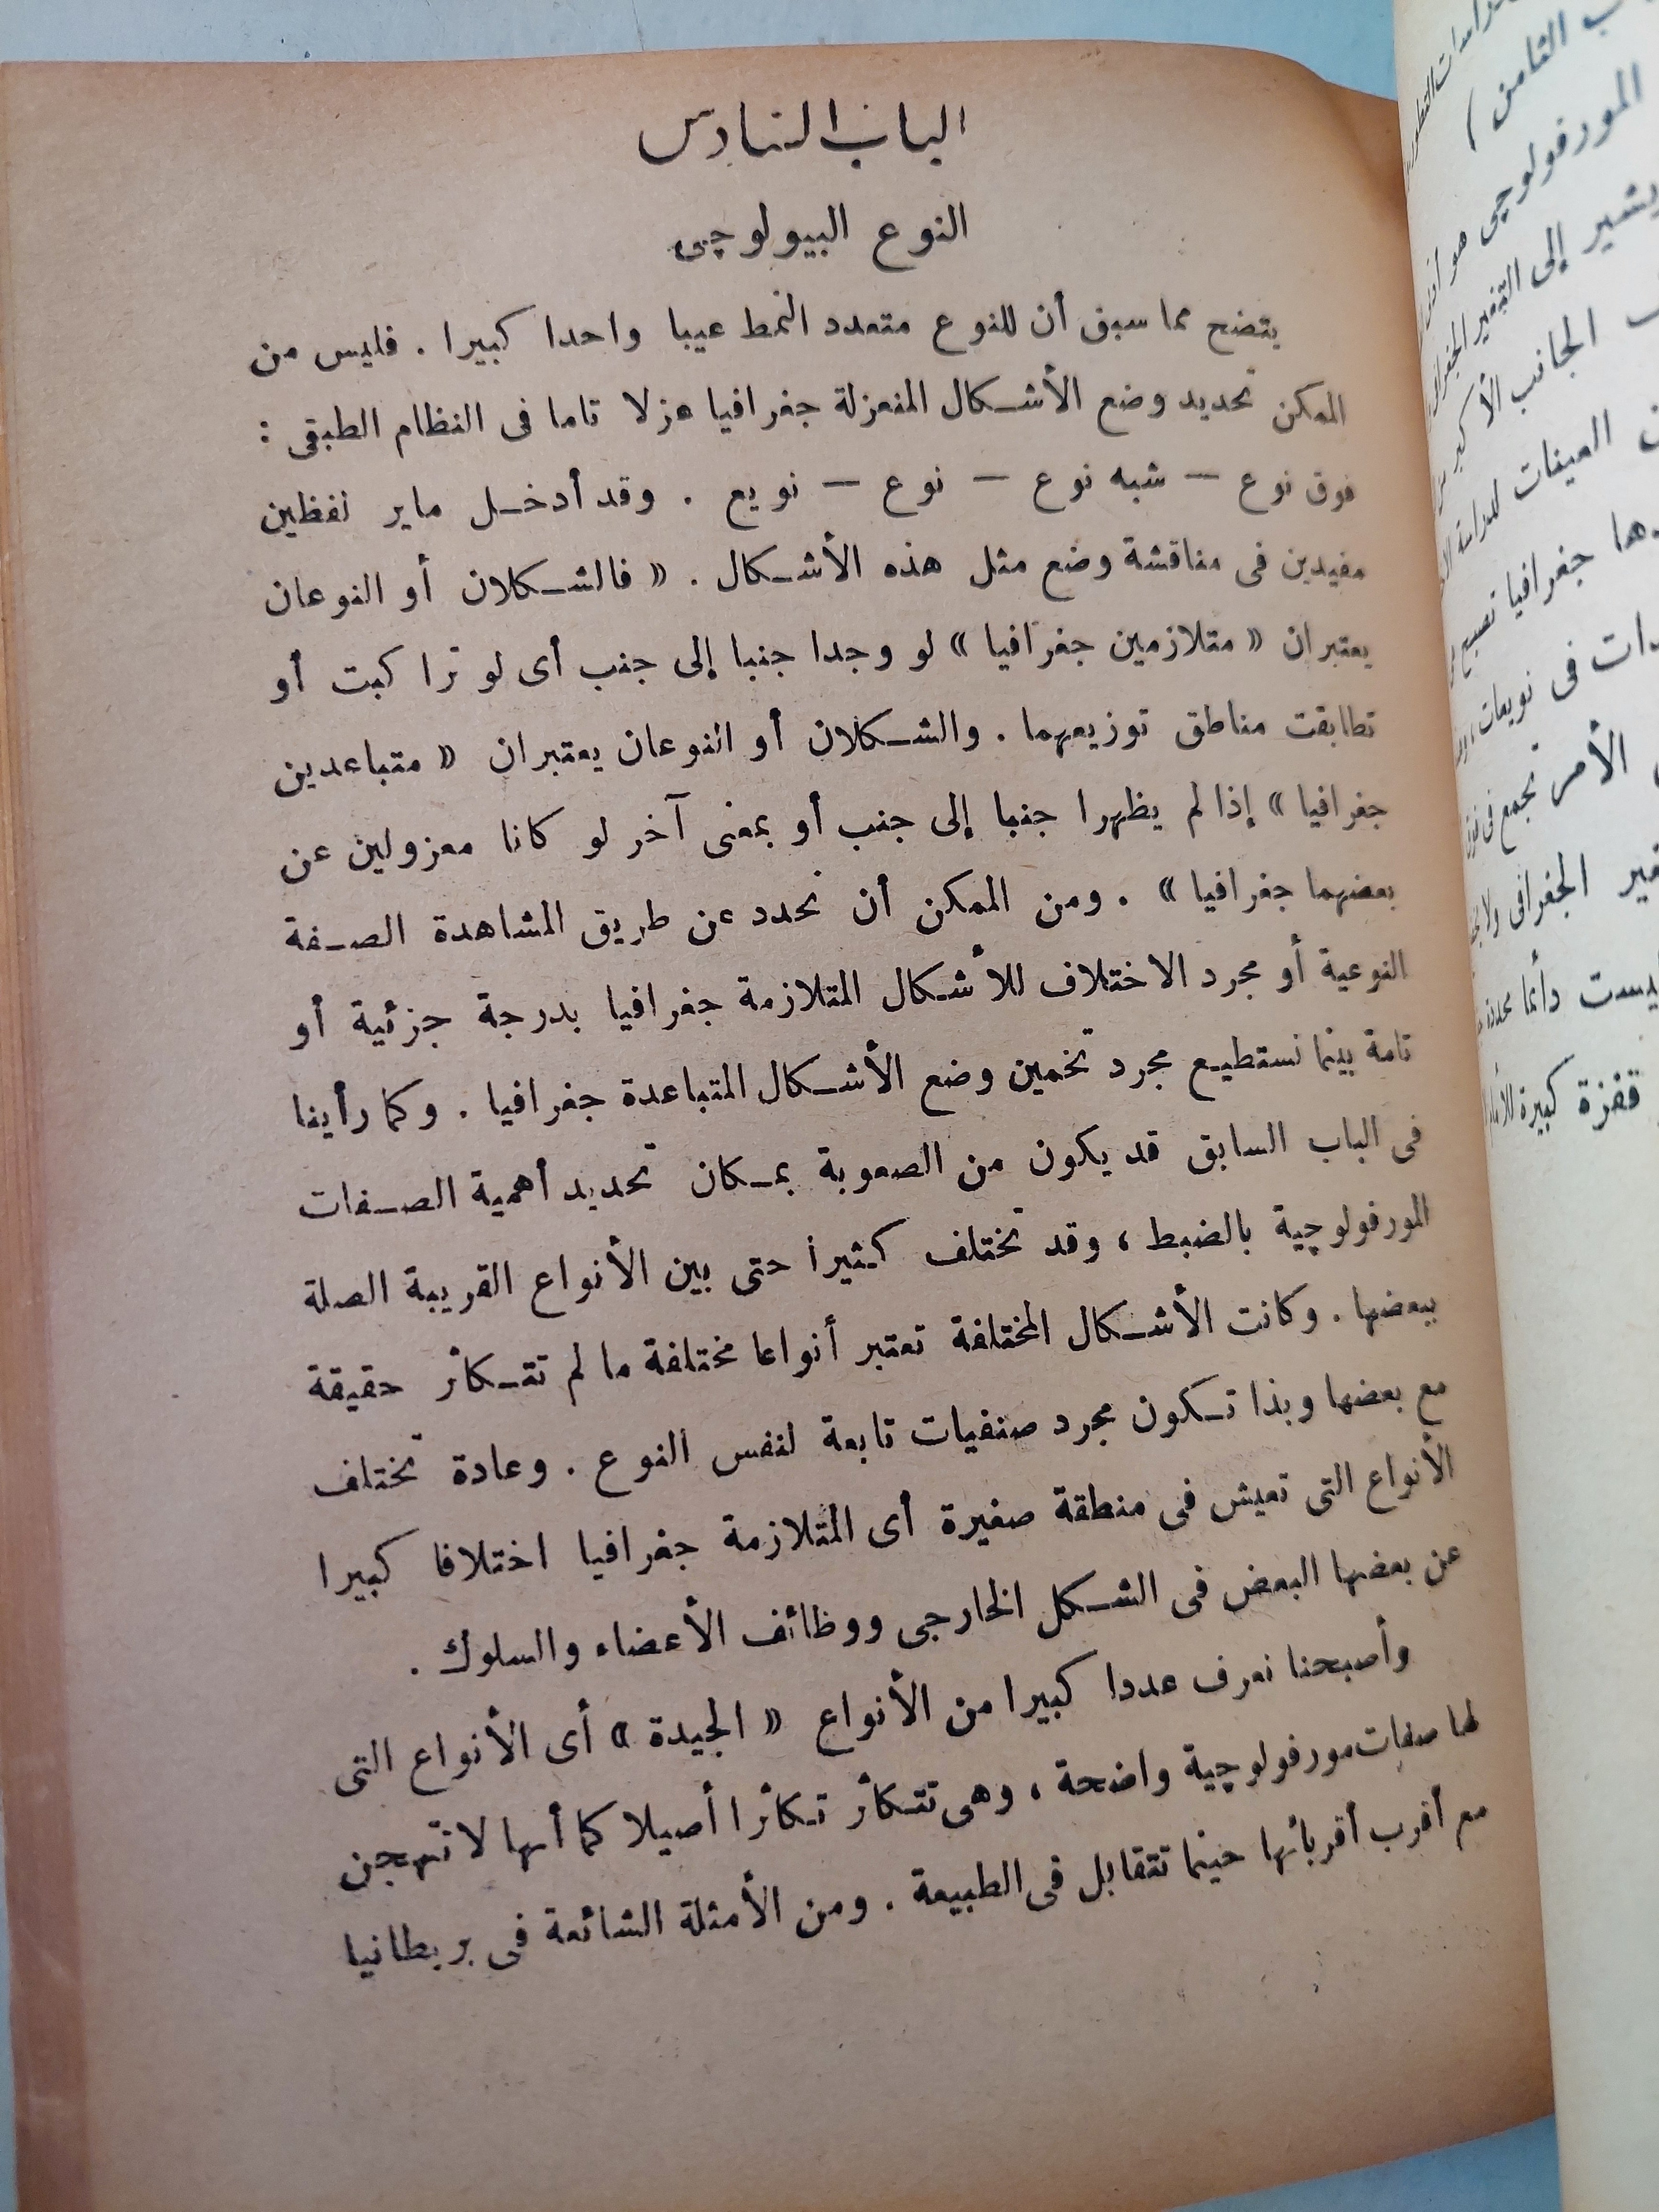 الباب السادس
النوع البيولوچى
يتضح مما سبق أن للنوع متعدد النمط عيبا واحدا كبيرا . فليس من
الممكن تحديد وضع الأشكال المنعزلة جغرافيا عزلا تاما فى النظام الطبقى :
فوق نوع — شبه نوع — نوع — نويع . وقد أدخل ماير لفظين
مفيدين فى مناقشة وضع مثل هذه الأشكال . « فالشكلان أو النوعان
يعتبران « متلازمين جغرافيا » لو وجدا جنبا إلى جنب أى لو تراكبت أو
تطابقت مناطق توزيعهما . والشكلان أو النوعان يعتبران « متباعدين
جغرافيا » إذا لم يظهرا جنبا إلى جنب أو بمعنى آخر لو كانا معزولين عن
بعضهما جغرافيا » . ومن الممكن أن نحدد عن طريق المشاهدة الصفة
النوعية أو مجرد الاختلاف للأشكال المتلازمة جغرافيا بدرجة جزئية أو
تامة بينما نستطيع مجرد تخمين وضع الأشكال المتباعدة جغرافيا . وكما رأينا
فى الباب السابق قد يكون من الصعوبة بمكان تحديد أهمية الصفات
المورفولوچية بالضبط ، وقد تختلف كثيرا حتى بين الأنواع القريبة الصلة
ببعضها . وكانت الأشكال المختلفة تعتبر أنواعا مختلفة ما لم تتكاثر حقيقة
مع بعضها وبذا تكون مجرد صنفيات تابعة لنفس النوع . وعادة تختلف
الأنواع التى تعيش فى منطقة صغيرة أى المتلازمة جغرافيا اختلافا كبيرا
عن بعضها البعض فى الشكل الخارجى ووظائف الأعضاء والسلوك .
وأصبحنا نعرف عددا كبيرا من الأنواع « الجيدة » أى الأنواع التى
لها صفات مورفولوچية واضحة ، وهى تتكاثر تكاثرا أصيلا كما أنها لا تهجن
مع أقرب أقربائها حينما تتقابل فى الطبيعة . ومن الأمثلة الشائعة فى بريطانيا
الثامن )
المورفولوچى هو
يشير إلى التغير
الجانب
العينات للدراسة
جغرافيا تصبح
فى نويعات
الأمر تجمع فى
الجغرافى
ليست دائما محددة
قفزة كبيرة